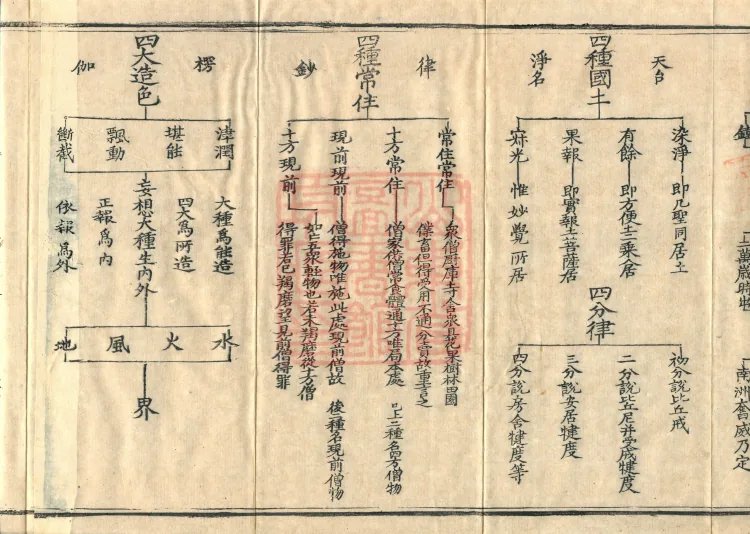 四種國土
天台
淨名
染淨
即凡聖同居土
有餘
即方便土三乘人居
果報
即實報土菩薩居
寂光
惟妙覺所居
四分律
初分說比丘戒
二分說比丘尼并受戒犍度
三分說安居犍度
四分說房舍犍度等
四種常住
律
鈔
常住常住
眾僧厨庫寺舍眾具花果樹林田園
僕畜但得受用不通分賣故重言之
十方常住
僧家供僧常食體通十方唯局本處
二種名
方僧物
現前現前
僧得施物唯施此處現前僧故
後二種名現前僧物
十方現前
如亡五眾輕物也若未羯磨從十方僧
得罪若已羯磨望見前僧得罪
四大造色
楞
伽
津潤
大種為能造
堪能
四大為所造
飄動
正報為內
斷截
依報為外
妄想大種生內外
水
火
風
地
界
萬歲時物
南洲奮威乃定